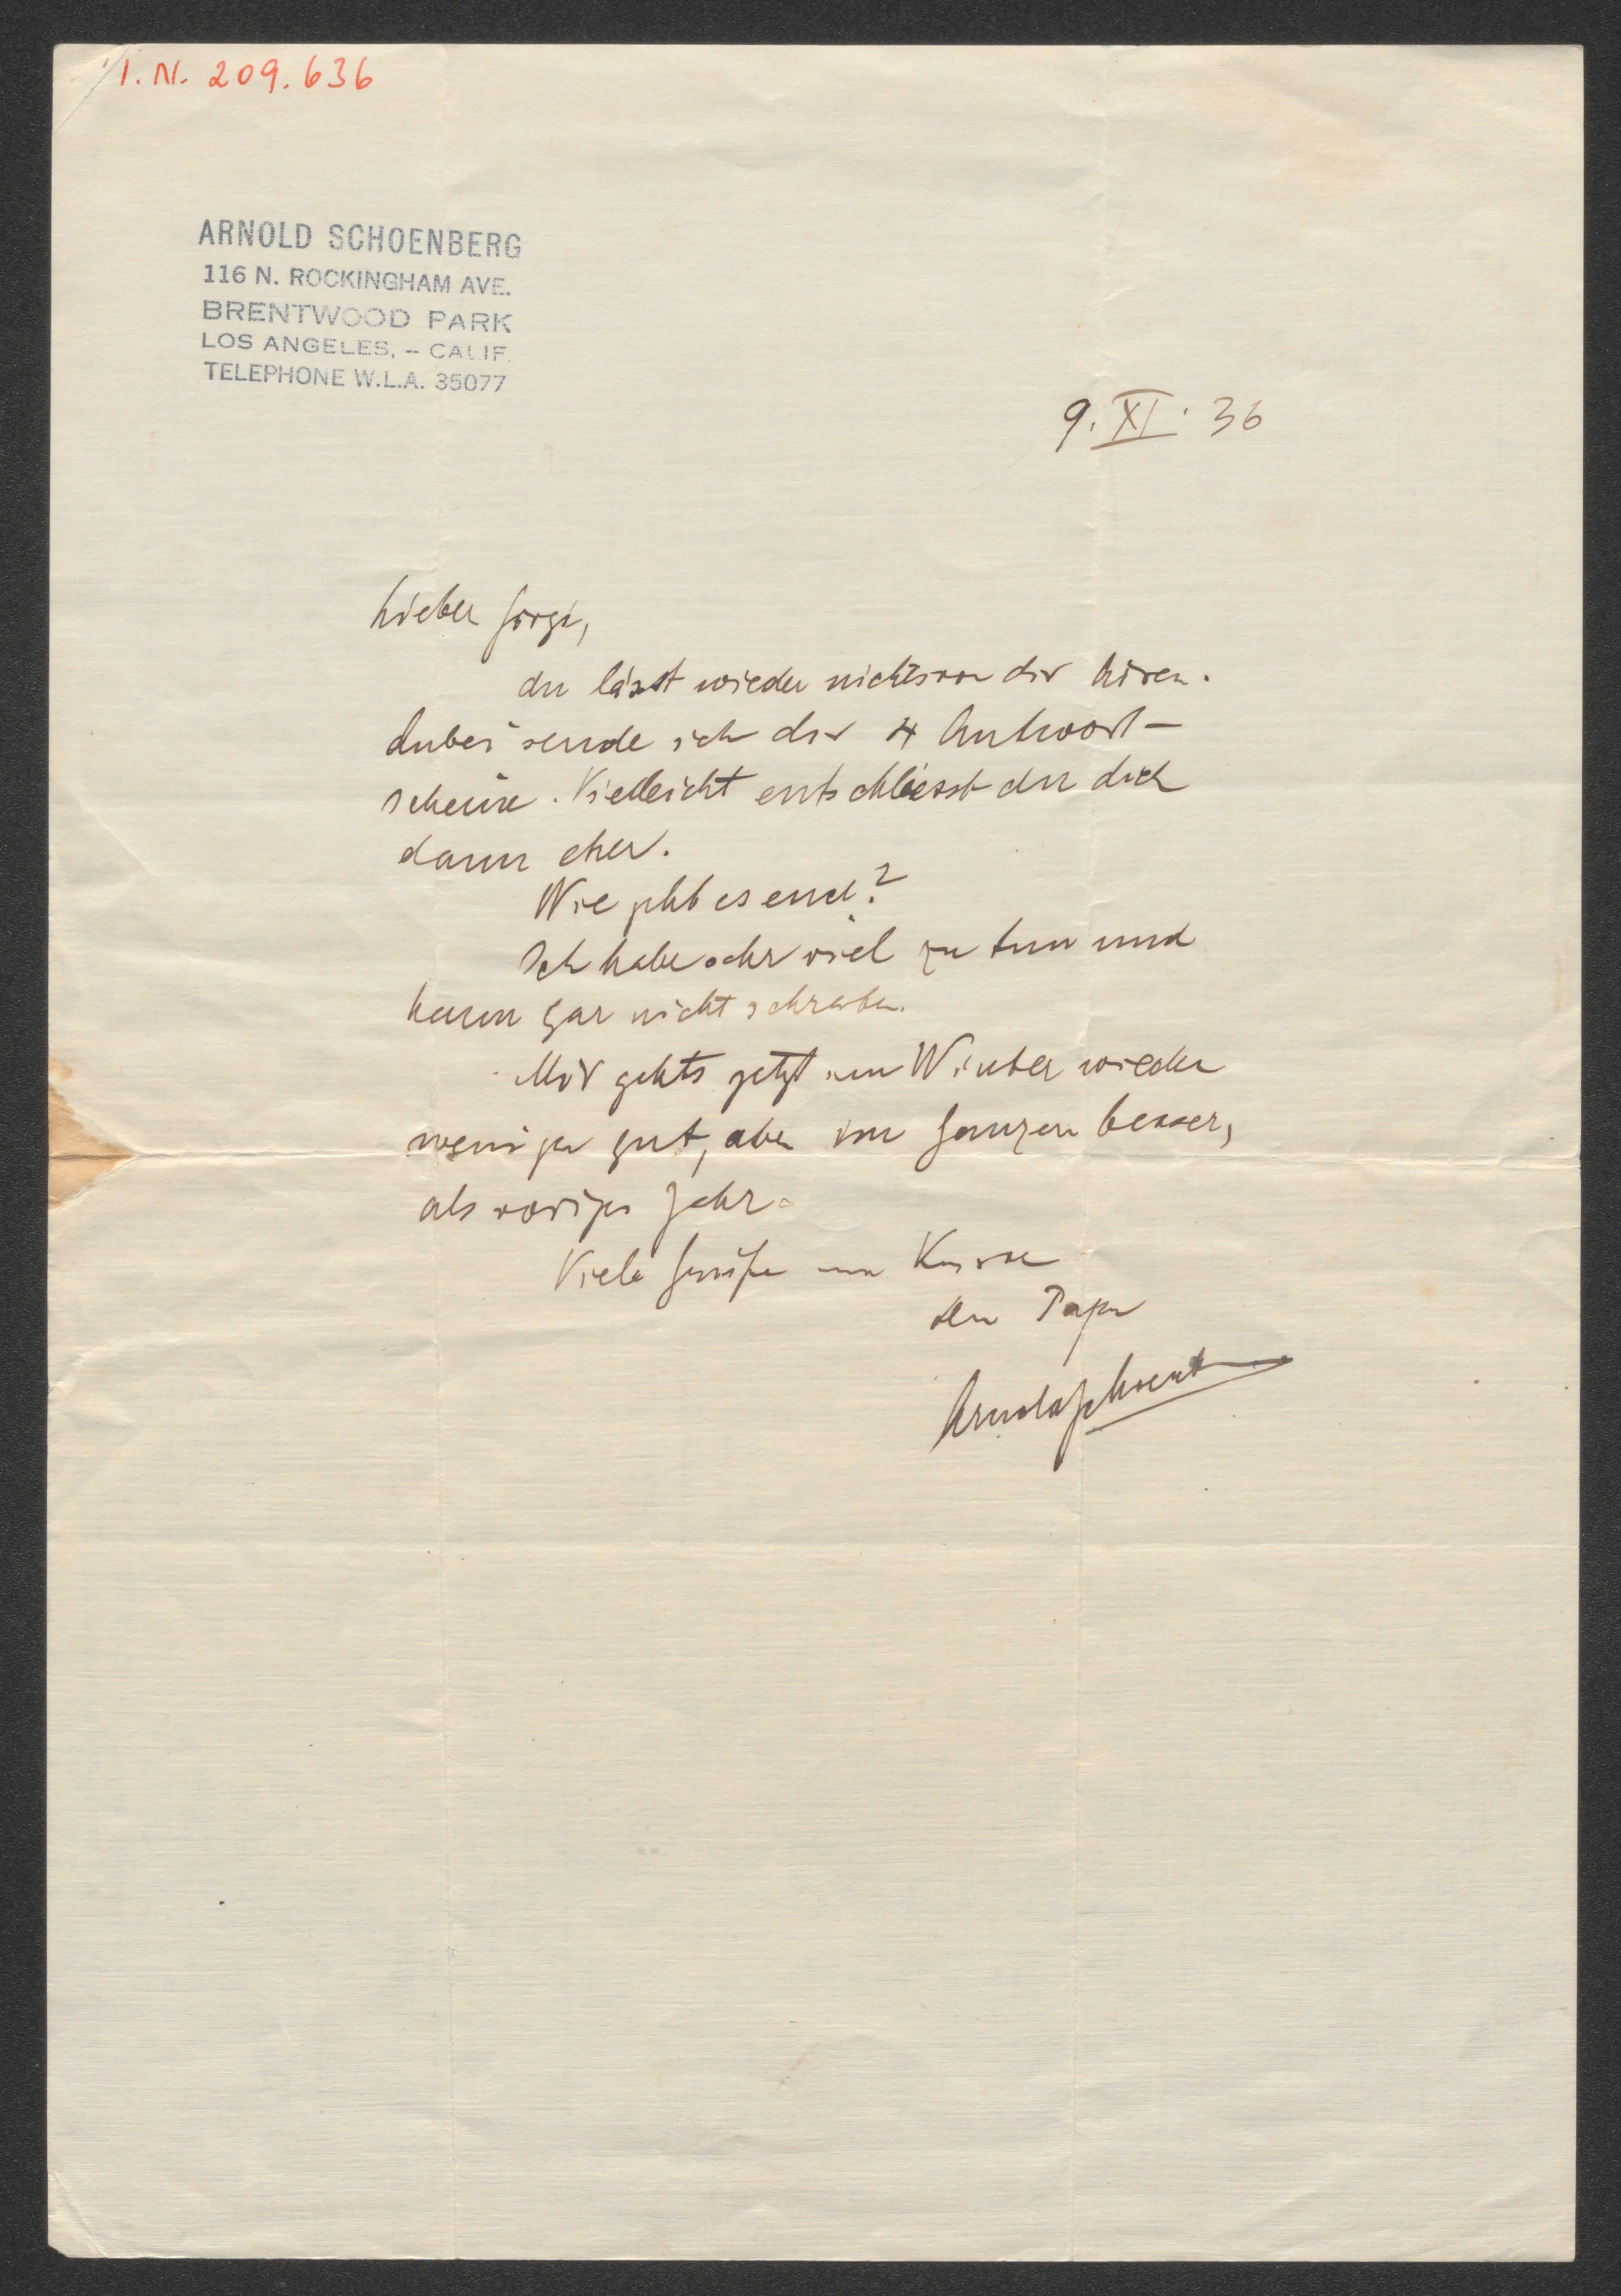 I. N. 209.636
ARNOLD SCHOENBERG
116 N. ROCKINGHAM AVE.
BRENTWOOD PARK
LOS ANGELES, -- CALIF.
TELEPHONE W.L.A. 35077
9. XI. 36
Lieber Görgi,
du lässt wieder nichts von dir hören.
Dabei sende ich dir 4 Antwort-
scheine. Vielleicht entschliesst du dich
dann eher.
Wie geht es euch?
Ich habe sehr viel zu tun und
kann gar nicht schreiben.
Mir gehts jetzt im Winter wieder
weniger gut, aber im Ganzen besser,
als voriges Jahr.
Viele Grüße und Küsse
dein Papa
Arnold Schoenberg